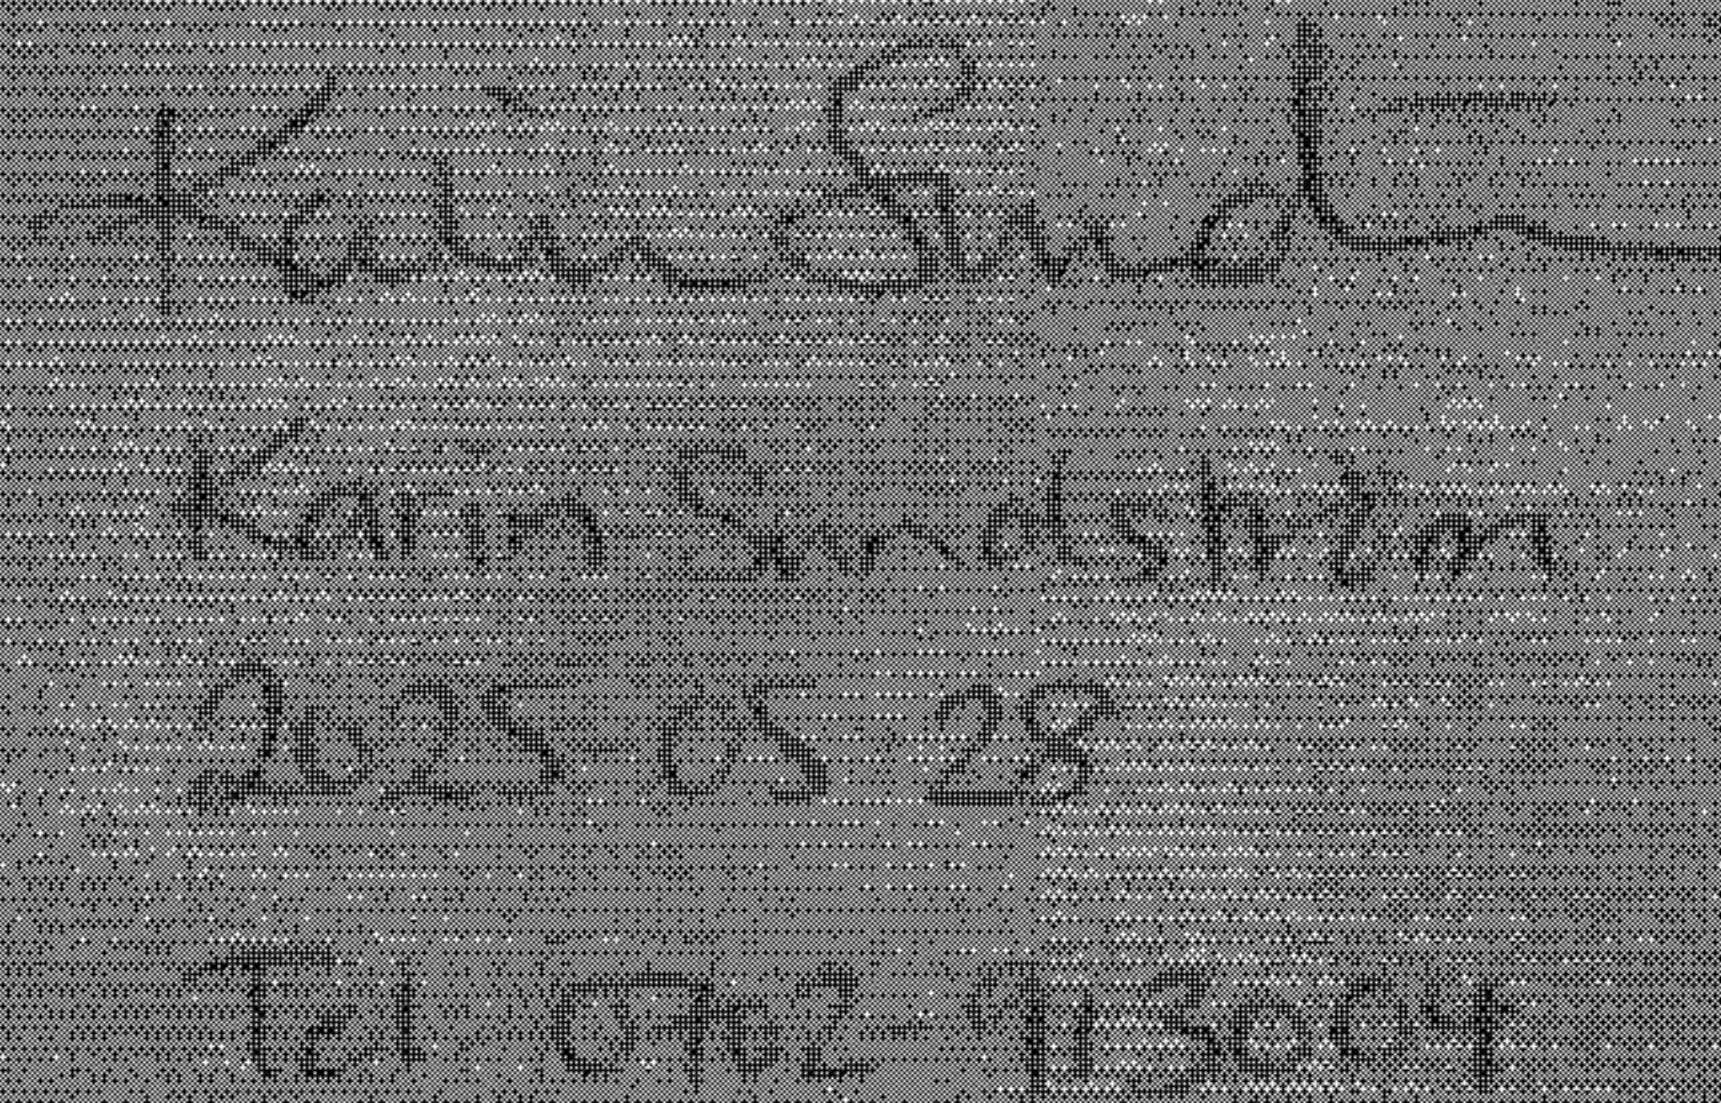 Karin Sund
Karin Sundström
2025 05 28
Tel 0702-913004